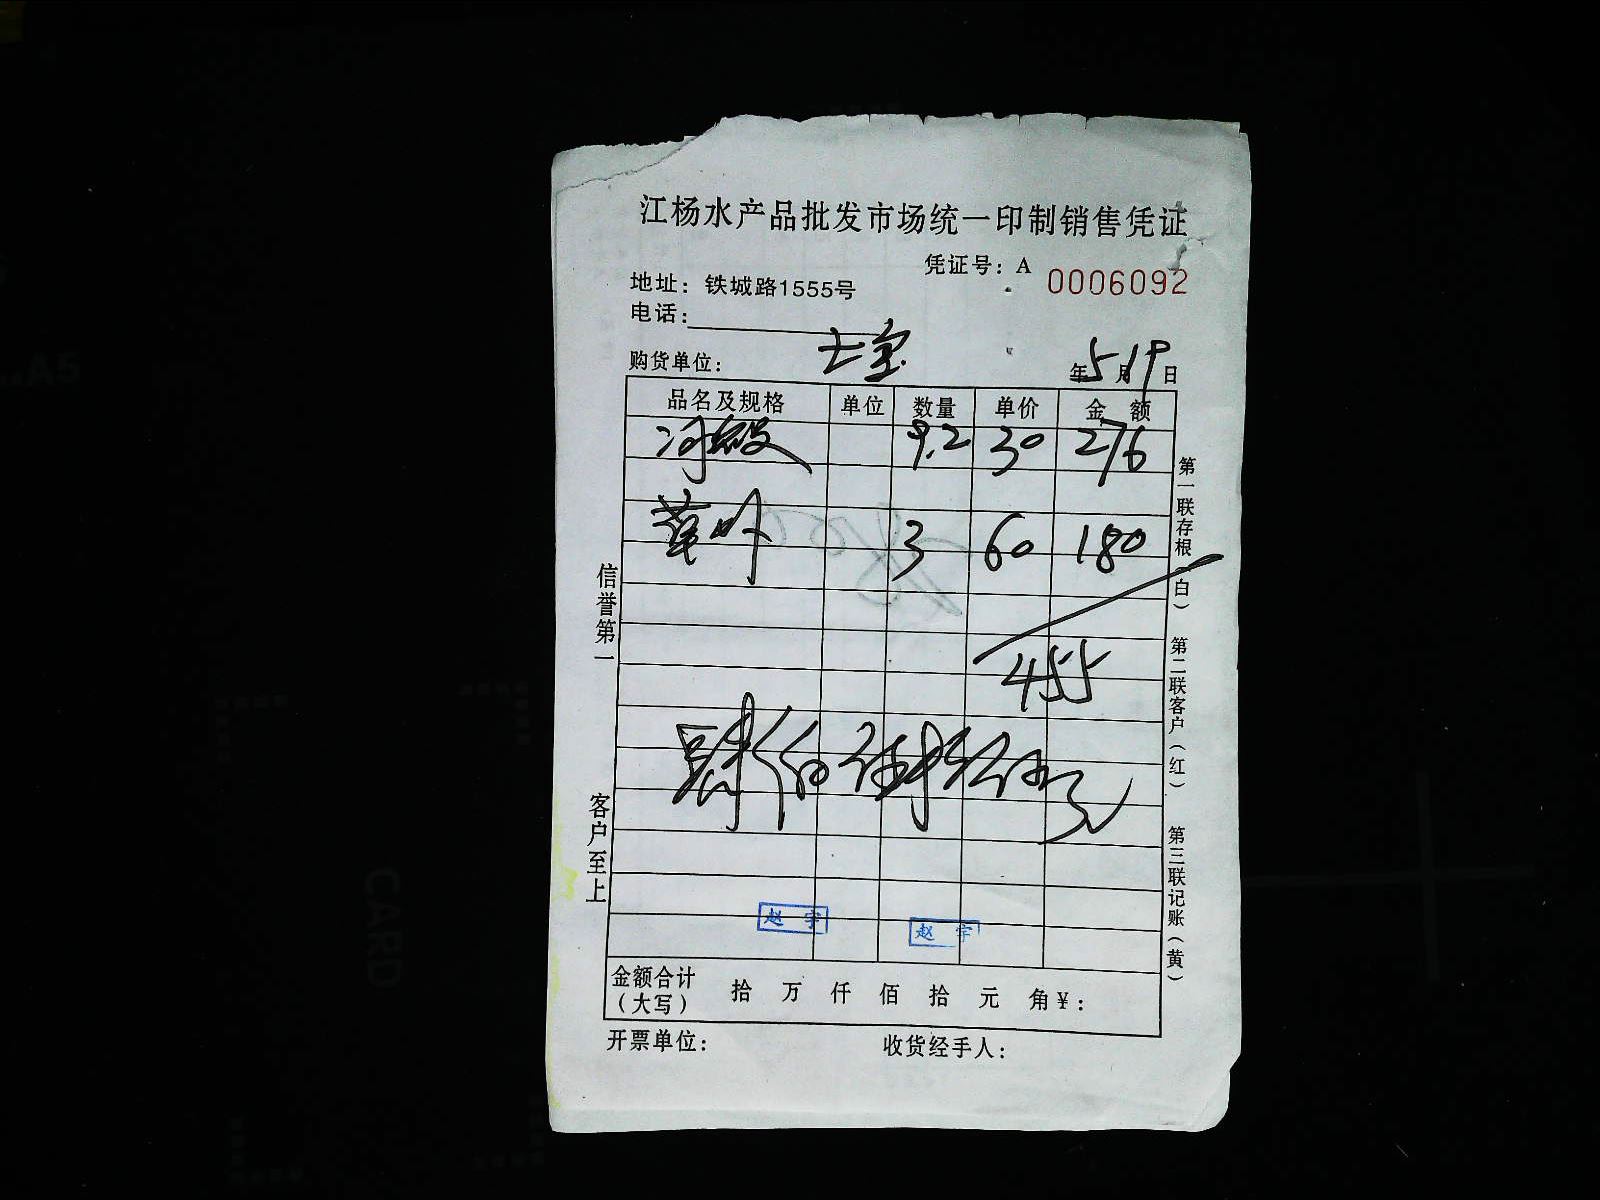 江杨水产品批发市场统一印制销售凭证
凭证号：A 0006092
地址：铁城路1555号
电话：
购货单位： 七宝
年5月19日
品名及规格 单位 数量 单价 金 额
河 9.2 30 276
草叶 3 60 180
455
肆佰伍拾伍元
赵 宇
赵 宇
金额合计（大写） 拾 万 仟 佰 拾 元 角￥：
开票单位： 收货经手人：
信誉第一
客户至上
第一联存根（白）
第二联客户（红）
第三联记账（黄）
A5
CARD